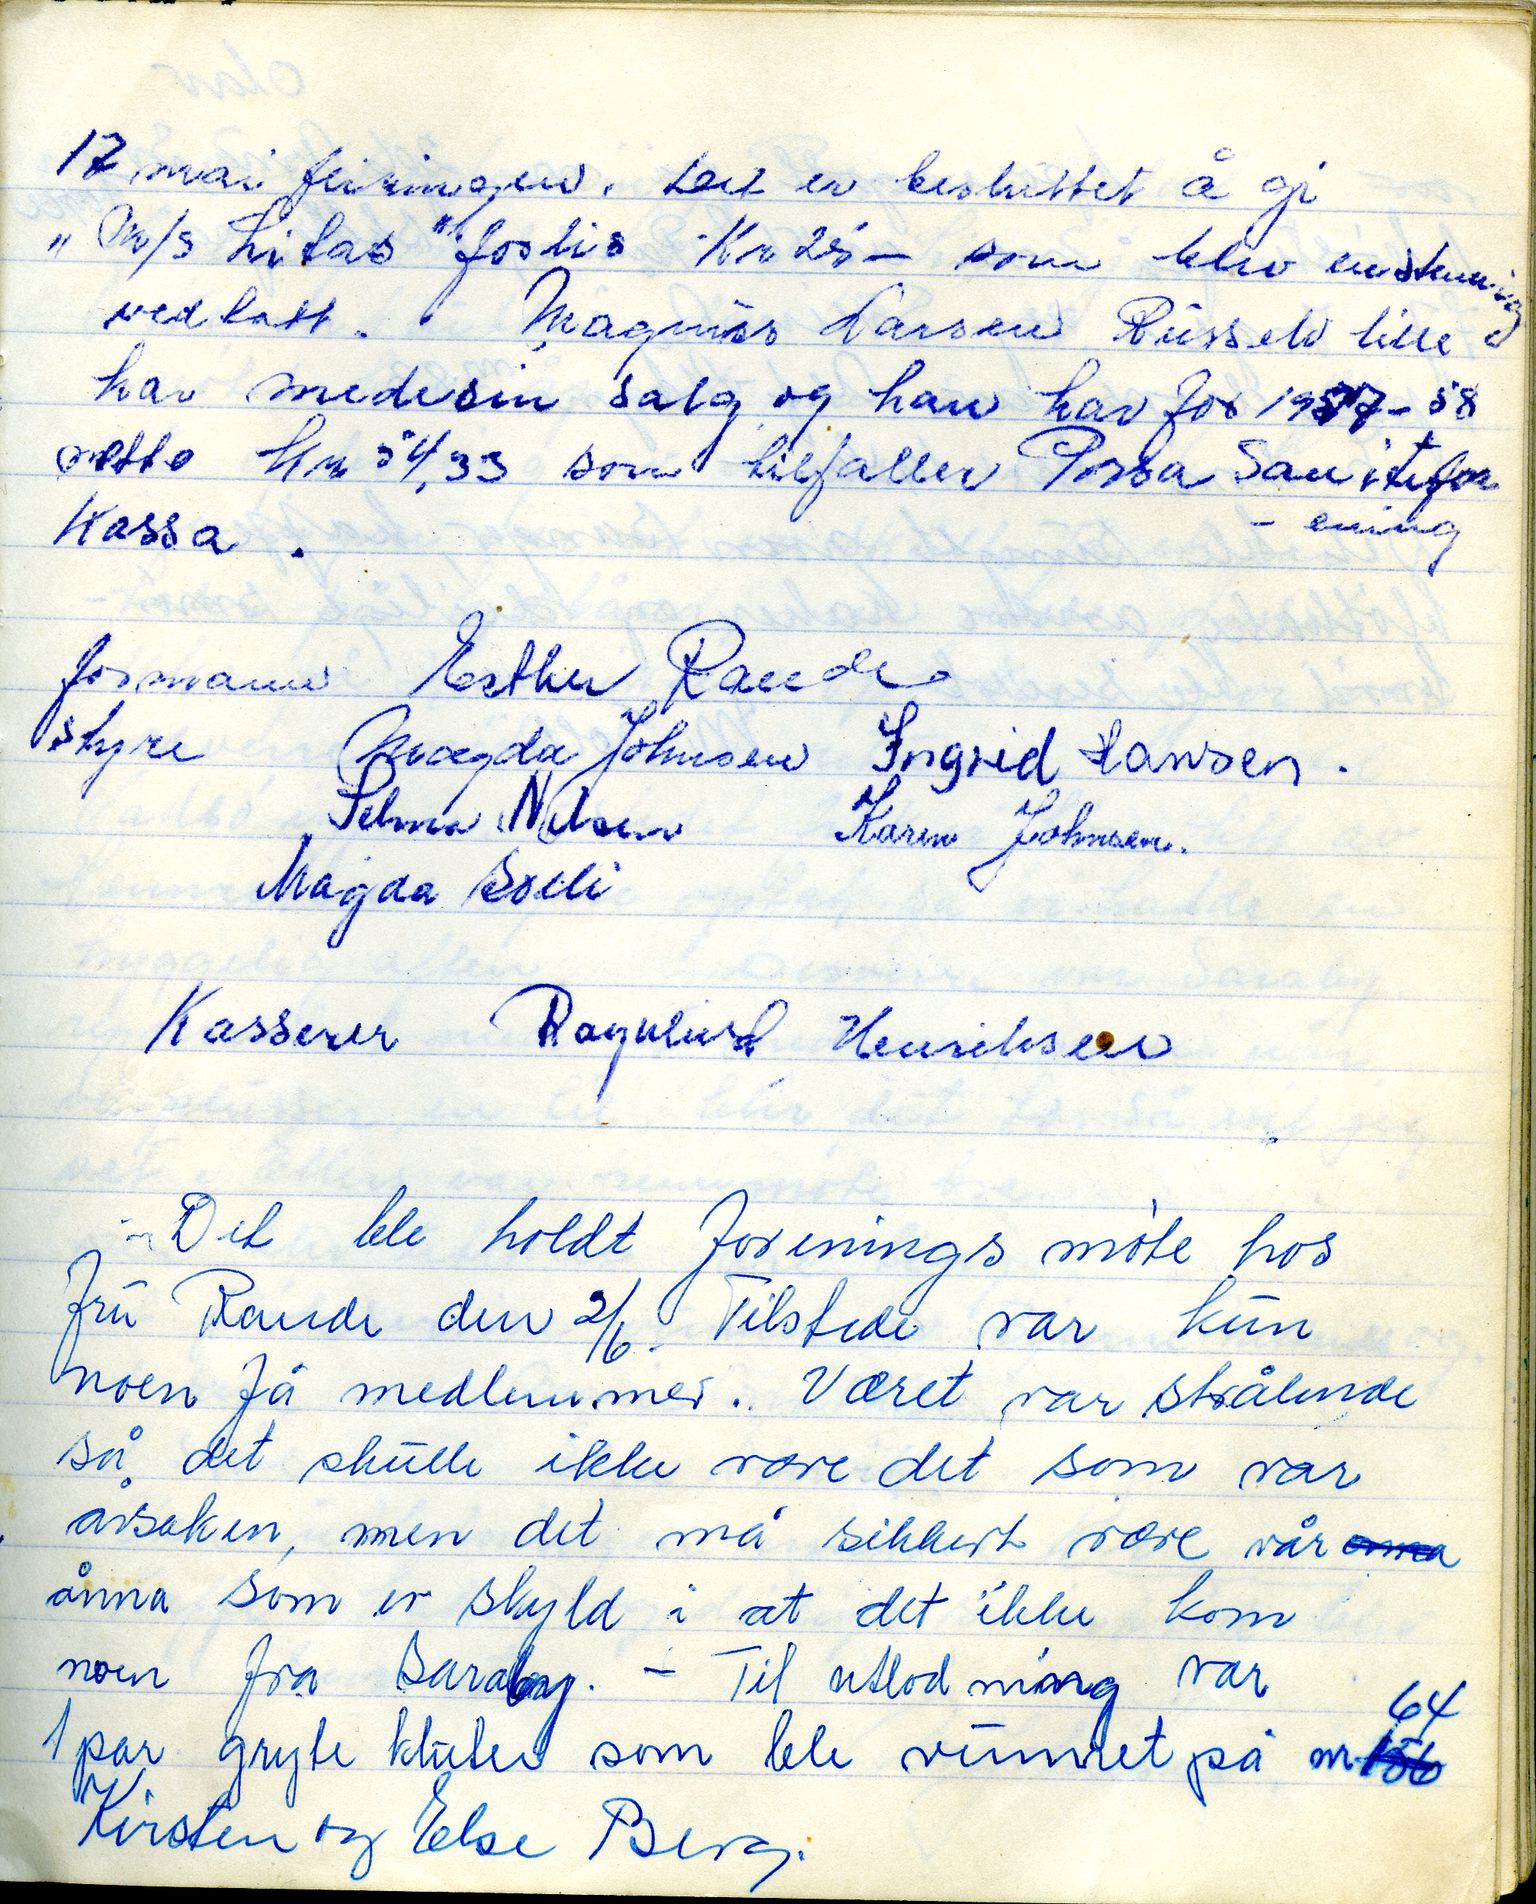 17 mai feiringen. Det er besluttet å gi
"M/S Litas" forlis Kr 25,- som blev enstemmig
vedtatt. Magnus Larsen Russelv lille
har medesin salg og han har for 1957-58
netto Kr 54,33 som tilfaller Porsa Sanitetsfor
- ening
Kassa.
formann Esther Rande
Styre Magda Johnsen Ingrid Hansen.
Selma Nilsen Karen Johnsen.
Magda Solli
Kasserer Ragnhild Henriksen
Det ble holdt forenings møte hos
fru Rande den 2/6. Tilstede var kun
noen få medlemmer. Været var strålende
så det skulle ikke være det som var
årsaken, men det må sikkert være vår
ånna som er skyld i at det ikke kom
noen fra Saraby. - Til utlodning var
1 par gryte kluter som ble vunnet på nr 64
Kirsten og Else Berg.